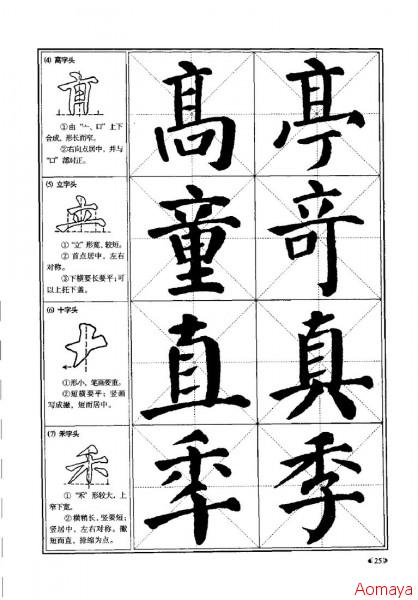 (4) 高字头
①由“亠、口”上下
合成，形长而窄。
②右向点居中，并与
“口”部对正。
髙 亭
(5) 立字头
①“立”形宽、较短。
② 首点居中，左右
对称。
③下横要长要平；可
以上托下盖。
童 竒
(6) 十字头
①形小，笔画要重。
②短横要平；竖画
写成撇，短而居中。
直 真
(7) 禾字头
①“禾”形较大，上
窄下宽。
②横稍长，竖要短；
竖居中，左右对称。撇
短而直，捺缩为点。
秊 季
25
Aomaya